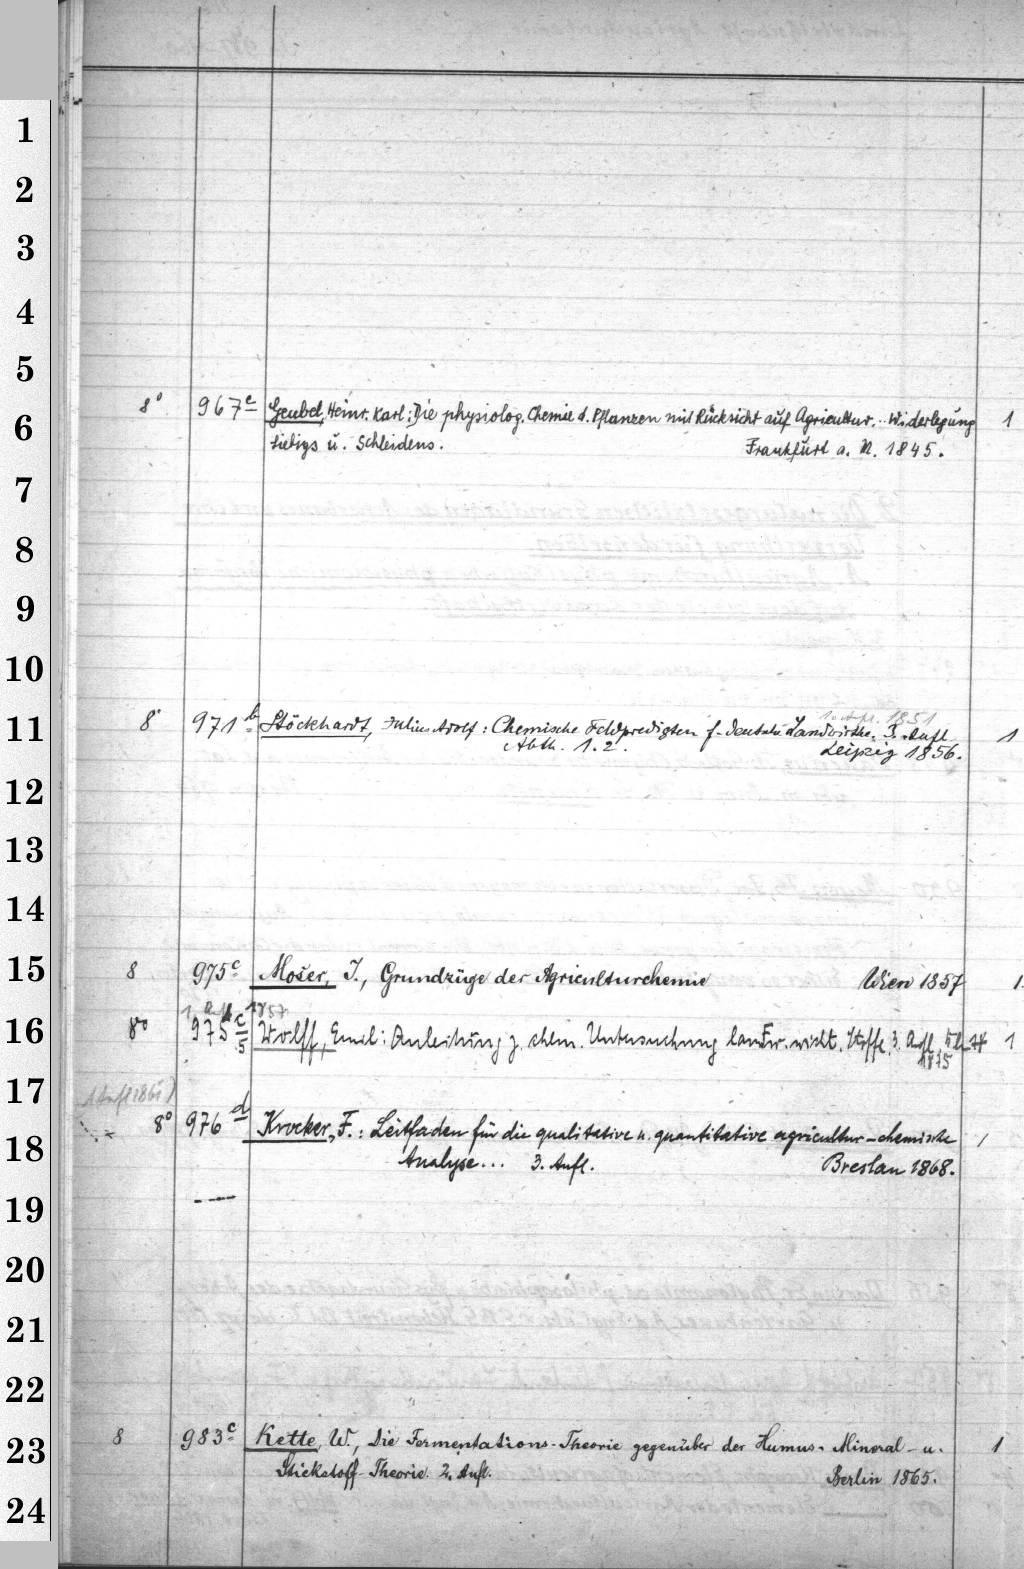 1
2
3
4
5
8° 967c Geubel, Heinr. Karl: Die physiolog. Chemie d. Pflanzen mit Rücksicht auf Agricultur... Widerlegung 1
6
Liebigs u. Schleidens. Frankfurt a. M. 1845.
7
8
9
10
1. Aufl. 1851
11 8° 971b Stöckhardt, Julius Adolf: Chemische Feldpredigten f. deutsche Landwirthe. 3. Aufl. 1
Abth. 1. 2. Leipzig 1856.
12
13
14
15 8 975c Moser, J., Grundzüge der Agriculturchemie Wien 1857 1.
1. Aufl. 1857
16 8° 975c/5 Wolff, Emil: Anleitung z. chem. Untersuchung landw. wicht. Stoffe 3. Aufl. 1
1875
17
1 Aufl 1861)
8° 976d Krocker, F.: Leitfaden für die qualitative u. quantitative agricultur-chemische 1
18
Analyse... 3. Aufl. Breslau 1868.
19
20
21
22
8 983c Kette, W., Die Fermentations-Theorie gegenüber der Humus- Mineral- u. 1
23
Stickstoff-Theorie. 2. Aufl. Berlin 1865.
24